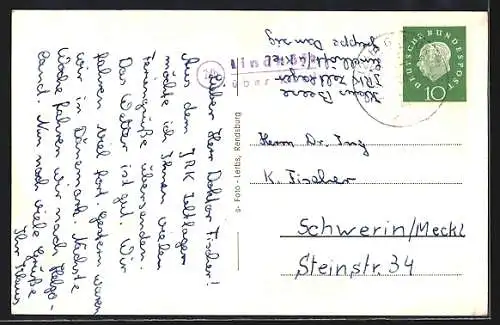 Lieber Herr Doktor Fischer!
Aus dem JRK Zeltlager
möchte ich Ihnen vielen
Feriengrüße übersenden.
Das Wetter ist gut. Wir
fahren viel fort. Gestern waren
wir in Dänemark. Nächste
Woche fahren wir nach Helgo-
land. Nun noch viele Grüße
Ihr Klaus
Klaus Beere
JRK Zeltlager
Gruppe Danzig
(24b)
über
DEUTSCHE BUNDESPOST
10
- Foto - Lerbs, Rendsburg
Herrn Dr. Ing
K. Fischer
Schwerin/Meckl
Steinstr. 34